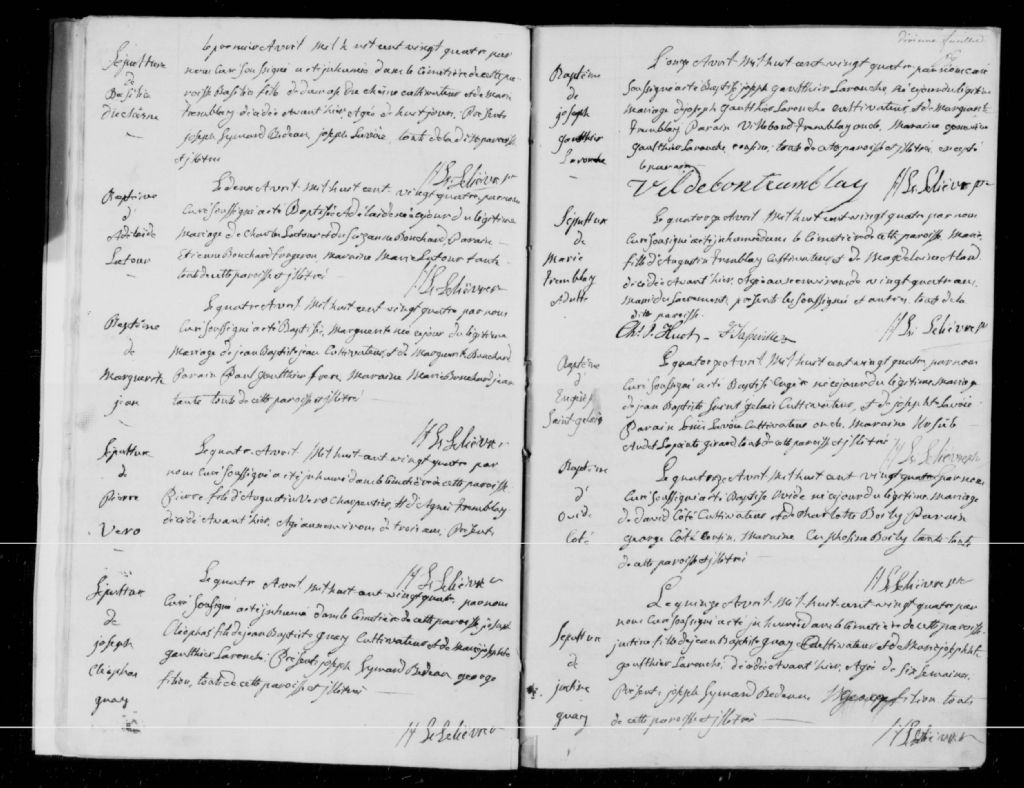 Sepulture
de
Basilice
Duchesne
Le premier Avril Mil huit cent vingt quatre par
nous Curé Soussigné a été inhumée dans le Cimetière de cette pa-
roisse Basilice fille de Damase Duchesne cultivateur et de Marie
tremblay décédée avant hier, Agée de huit jours. Présents
joseph Symard Bedeau, joseph Lavoie touts de la ditte paroisse
et jllitrés
H Le Lièvre ptr
Baptême
d'
Adelaide
Latour
Le deux Avril Mil huit cent vingt quatre, par nous
Curé Soussigné a été Baptisée Adelaide née ce jour du légitime
Mariage de Charles Latour et de Suzanne Bouchard, Parain
Etienne Bouchard forgeron Maraine Marie Latour tante
touts de cette paroisse et jllitrés
H Le Lièvre ptr
Baptême
de
Marguerite
jean
Le quatre Avril Mil huit cent vingt quatre par nous
Curé Soussigné a été Baptisée Marguerite née ce jour du légitime
Mariage de jean Baptiste jean Cultivateur, et de Marguerite Bouchard
Parain Paul Gautthier frere Maraine Marie Bouchard jean
tante touts de cette paroisse et jllitrés
H Le Lièvre ptr
Sepulture
de
Pierre
Vero
Le quatre Avril Mil huit cent vingt quatre par
nous Curé Soussigné a été jnhumé dans le Cimetière de cette paroisse
Pierre fils d'Augustin Vero Charpentier, et d'Agnès tremblay
décédé Avant hier, Agé environ de trois ans, Présents
H Le Lièvre ptr
Sepulture
de
joseph
Cléophas
guay
Le quatre Avril Mil huit cent vingt quatre, par nous
Curé Soussigné a été jnhumé dans le Cimetière de cette paroisse joseph
Cléophas fils de jean Baptiste guay Cultivateur et de Marie josephte
gautthier Larouche. Présents joseph Symard Bedeau george
filion, touts de cette paroisse et jllitrés
H Le Lièvre ptr
Baptême
de
joseph
gautthier
Larouche
L'onze Avril Mil huit cent vingt quatre par nous curé
Soussigné a été Baptisé joseph gautthier Larouche, né ce jour du légitime
Mariage de joseph gautthier Larouche cultivateur et de Marguerite
tremblay Parain Villebond tremblay oncle, Maraine
gautthier Larouche, cousine, touts de cette paroisse et jllitrés, excepté
le parain
Vildebontramblay H Le Lièvre ptr
Sepulture
de
Marie
tremblay
Adulte
Le quatorze Avril Mil huit cent vingt quatre par nous
Curé Soussigné a été jnhumée dans le Cimetière de cette paroisse Marie
fille d'Augustin tremblay Cultivateur et de Magdelaine
décédée Avant hier, Agée environ de vingt quatre ans
Munie du Sacrement, présents les Soussignés et autres, touts de la
ditte paroisse.
Chs. P. Huot H Le Lièvre ptr
Baptême
d'
Eugène
Saint-gelais
Le quatorze Avril Mil huit cent vingt quatre, par nous
Curé Soussigné a été Baptisé Eugène né ce jour du légitime Mariage
de jean Baptiste Saint gelais Cultivateur, et de josephte Lavoie
Parain Louis Lavoie Cultivateur oncle, Maraine Ursule
girard touts de cette paroisse et jllitrés
H Le Lièvre ptr
Baptême
d'
Ovide
Coté
Le quatorze Avril Mil huit cent vingt quatre par nous
Curé Soussigné a été Baptisé Ovide né ce jour du légitime Mariage
de david Coté Cultivateur et de Charlotte Boily Parain
george Coté Cousin, Maraine Euphosine Boily tante touts
de cette paroisse et jllitrés
H Le Lièvre ptr
Sepulture
de
justine
guay
Le quinze Avril Mil huit cent vingt quatre par
nous Curé Soussigné a été jnhumée dans le Cimetière de cette paroisse
justine fille de jean Baptiste guay Cultivateur et de Marie josephte
gautthier Larouche, décédée Avant hier, Agée de Six Semaines.
Présents joseph Symard Bedeau george filion touts
de cette paroisse et jllitrés
H Le Lièvre ptr